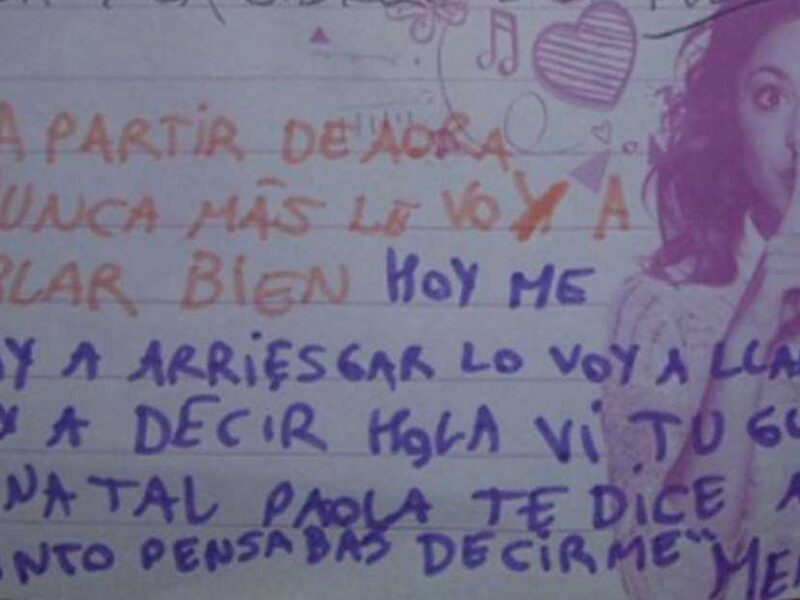 A PARTIR DE AORA
NUNCA MÁS LE VOY A
BLAR BIEN HOY ME
Y A ARRIESGAR LO VOY A LLA
Y A DECIR HOLA VI TU GU
NATAL PAOLA TE DICE A
NTO PENSABAS DECIRME" ME